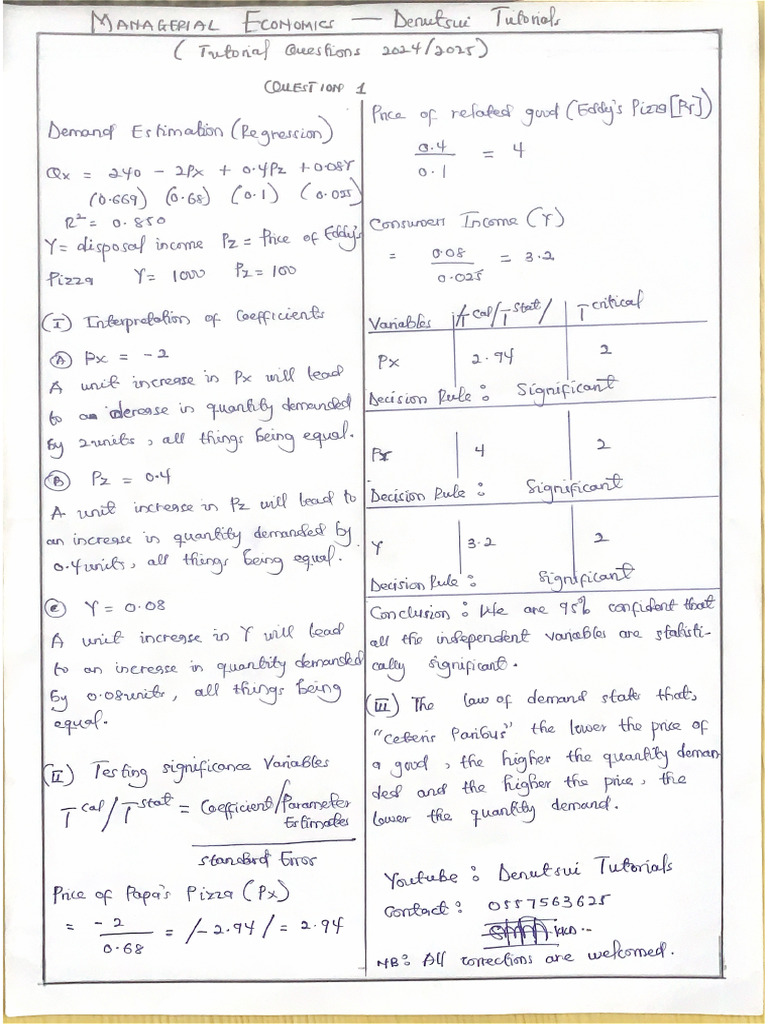 MANAGERIAL ECONOMICS — Denutsui Tutorials
(Tutorial Questions 2024/2025)
QUESTION 1
Demand Estimation (Regression)
Qx = 240 - 2Px + 0.4Pz + 0.08Y
(0.669) (0.68) (0.1) (0.025)
R² = 0.850
Y = disposal income Pz = Price of Eddy's
Pizza Y = 1000 Pz = 100
(I) Interpretation of Coefficients
(A) Px = -2
A unit increase in Px will lead
to a decrease in quantity demanded
by 2 units, all things being equal.
(B) Pz = 0.4
A unit increase in Pz will lead to
an increase in quantity demanded by
0.4 units, all things being equal.
(C) Y = 0.08
A unit increase in Y will lead
to an increase in quantity demanded
by 0.08 units, all things being
equal.
(II) Testing significance Variables
T cal / T stat = Coefficient/Parameter
Estimates
Standard Error
Price of Papa's Pizza (Px)
= -2 / 0.68 = /-2.94/ = 2.94
Price of related good (Eddy's Pizza [Pr])
0.4 / 0.1 = 4
Consumers Income (Y)
= 0.08 / 0.025 = 3.2
Variables T cal/T stat/ T critical
Px 2.94 2
Decision Rule: Significant
Pr 4 2
Decision Rule: Significant
Y 3.2 2
Decision Rule: Significant
Conclusion: We are 95% confident that
all the independent variables are statisti-
cally significant.
(III) The law of demand states that,
"Ceteris Paribus" the lower the price of
a good, the higher the quantity deman
ded and the higher the price, the
lower the quantity demand.
Youtube: Denutsui Tutorials
Contact: 0557563625
NB: All corrections are welcomed.